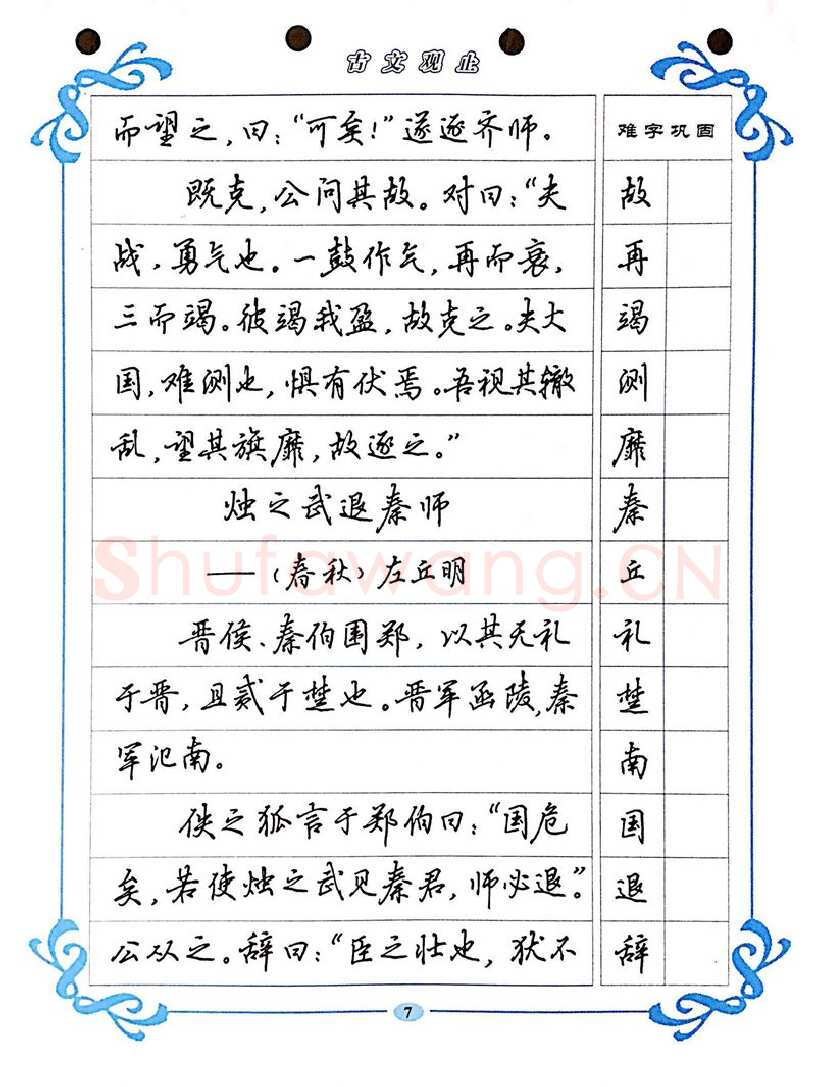 古文观止
而望之，曰：“可矣！”遂逐齐师。
难字巩固
既克，公问其故。对曰：“夫
故
战，勇气也。一鼓作气，再而衰，
再
三而竭。彼竭我盈，故克之。夫大
竭
国，难测也，惧有伏焉。吾视其辙
测
乱，望其旗靡，故逐之。”
靡
烛之武退秦师
秦
——（春秋）左丘明
丘
晋侯、秦伯围郑，以其无礼
礼
于晋，且贰于楚也。晋军函陵，秦
楚
军氾南。
南
佚之狐言于郑伯曰：“国危
国
矣，若使烛之武见秦君，师必退。”
退
公从之。辞曰：“臣之壮也，犹不
辞
7
Shufawang.CN